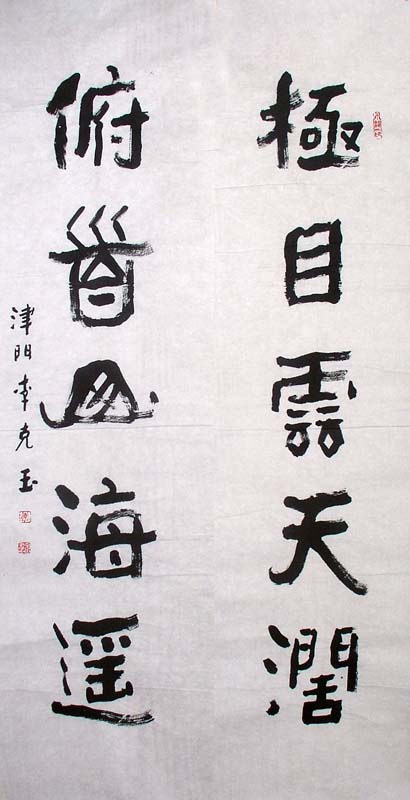 極目雲天濶
俯首山海遥
津门李克玉